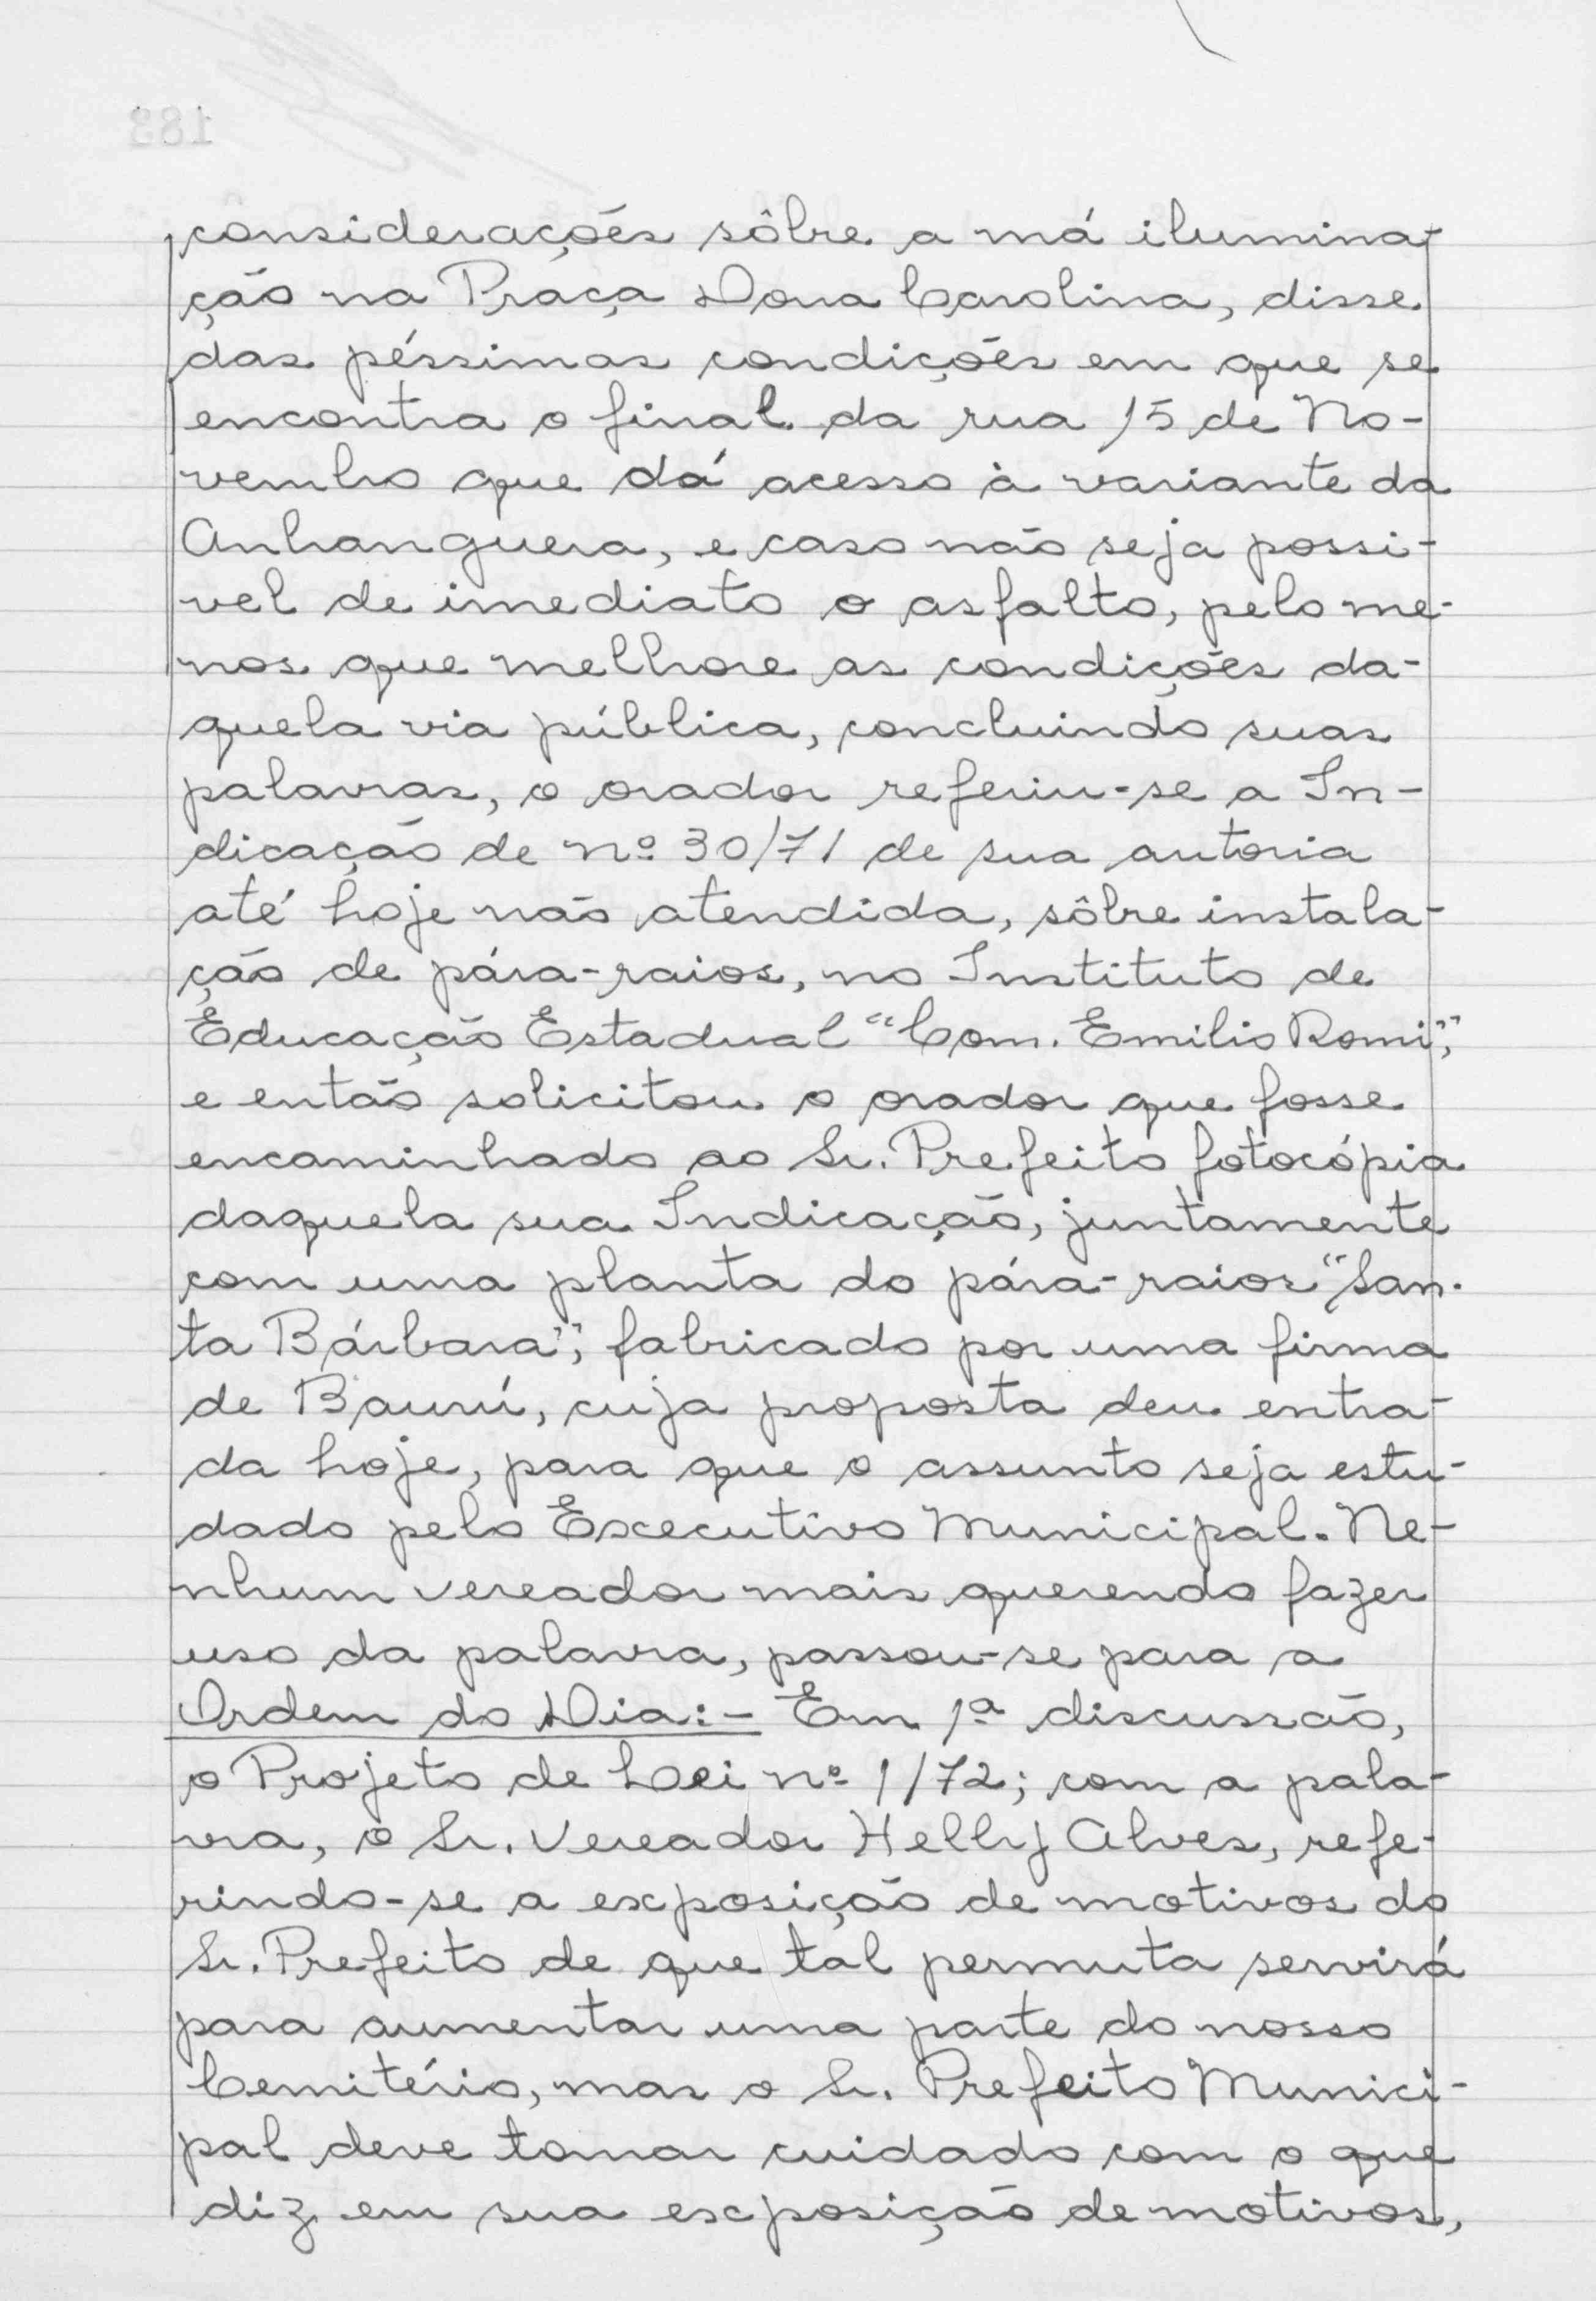 considerações sôbre a má ilumina-
ção na Praça Dona Carolina, disse
das péssimas condições em que se
encontra o final da rua 15 de No-
vembro que dá acesso à variante da
Anhanguera, e caso não seja possi-
vel de imediato o asfalto, pelo me-
nos que melhore as condições da-
quela via pública, concluindo suas
palavras, o orador referiu-se a In-
dicação de nº 30/71 de sua autoria
até hoje não atendida, sôbre instala-
ção de pára-raios, no Instituto de
Educação Estadual "Com. Emilio Romi",
e então solicitou o orador que fosse
encaminhado ao Sr. Prefeito fotocópia
daquela sua Indicação, juntamente
com uma planta do pára-raios "San-
ta Bárbara", fabricado por uma firma
de Baurú, cuja proposta deu entra-
da hoje, para que o assunto seja estu-
dado pelo Executivo Municipal. Ne-
nhum vereador mais querendo fazer
uso da palavra, passou-se para a
Ordem do Dia:- Em 1ª discussão,
o Projeto de Lei nº 1/72; com a pala-
vra, o Sr. Vereador Helly Alves, refe-
rindo-se a exposição de motivos do
Sr. Prefeito de que tal permuta servirá
para aumentar uma parte do nosso
Cemitério, mas o Sr. Prefeito Munici-
pal deve tomar cuidado com o que
diz em sua exposição de motivos,